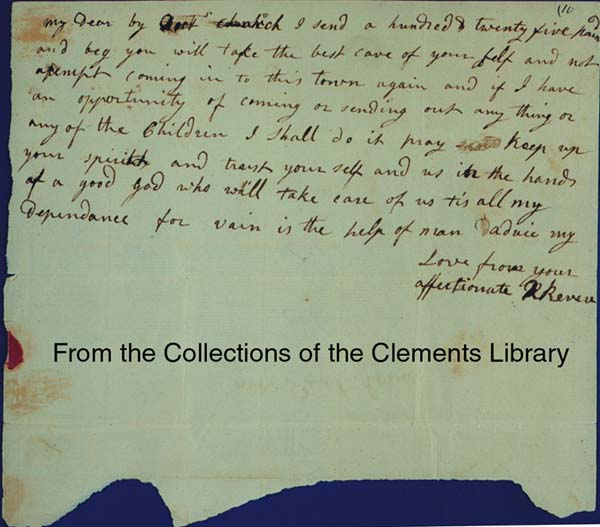 (10
my Dear by Doct.r Church I send a hundred & twenty five
and beg you will take the best care of your self and not
atempt coming in to this town again and if I have
an opportunity of coming or sending out any thing or
any of the Children I shall do it pray Keep up
your spirits and trust your self and us in the hands
of a good god who will take care of us tis all my
Dependance for vain is the help of man aduie my
Love from your
affectionate R Revere
From the Collections of the Clements Library